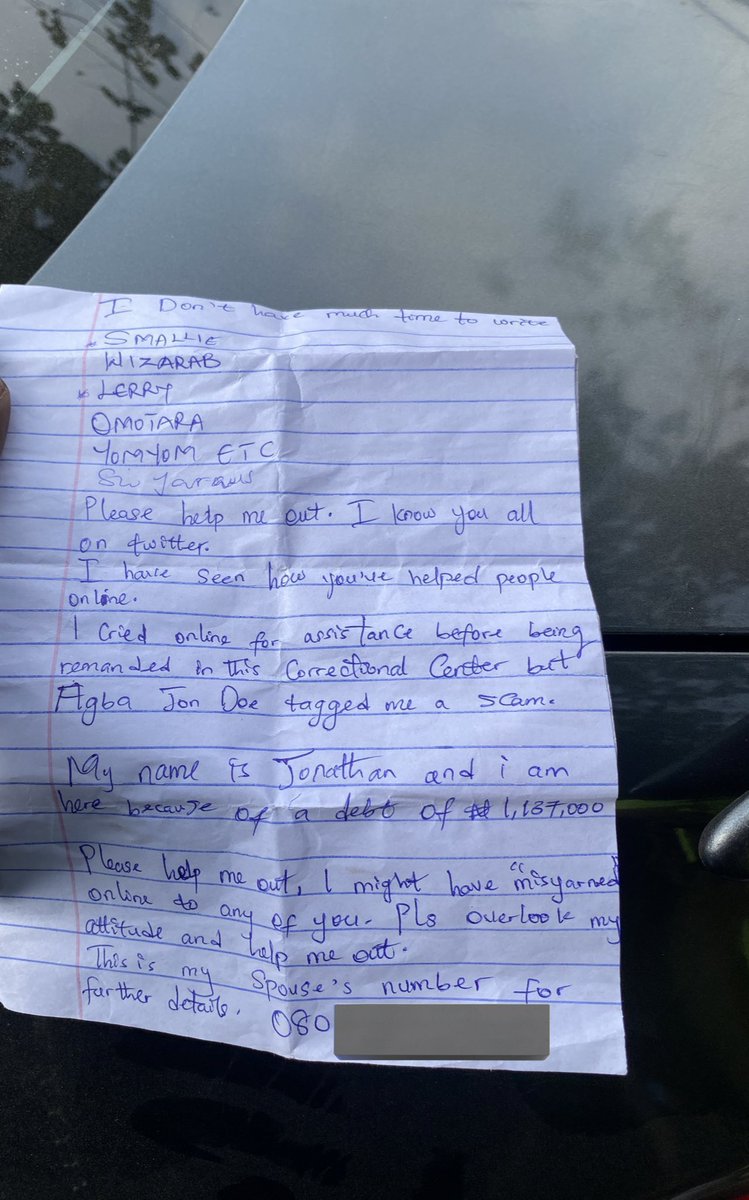 I Don't have much time to write
SMALLIE
WIZARAB
LERRY
OMOTARA
YOMYOM ETC
Please help me out. I know you all
on twitter.
I have seen how you've helped people
online.
I cried online for assistance before being
remanded in this Correctional Center but
Agba Jon Doe tagged me a scam.
My name is Jonathan and i am
here because of a debt of ₦ 1,137,000
Please help me out, I might have "misyarned"
online to any of you. Pls overlook my
attitude and help me out.
This is my Spouse's number for
further details. 080